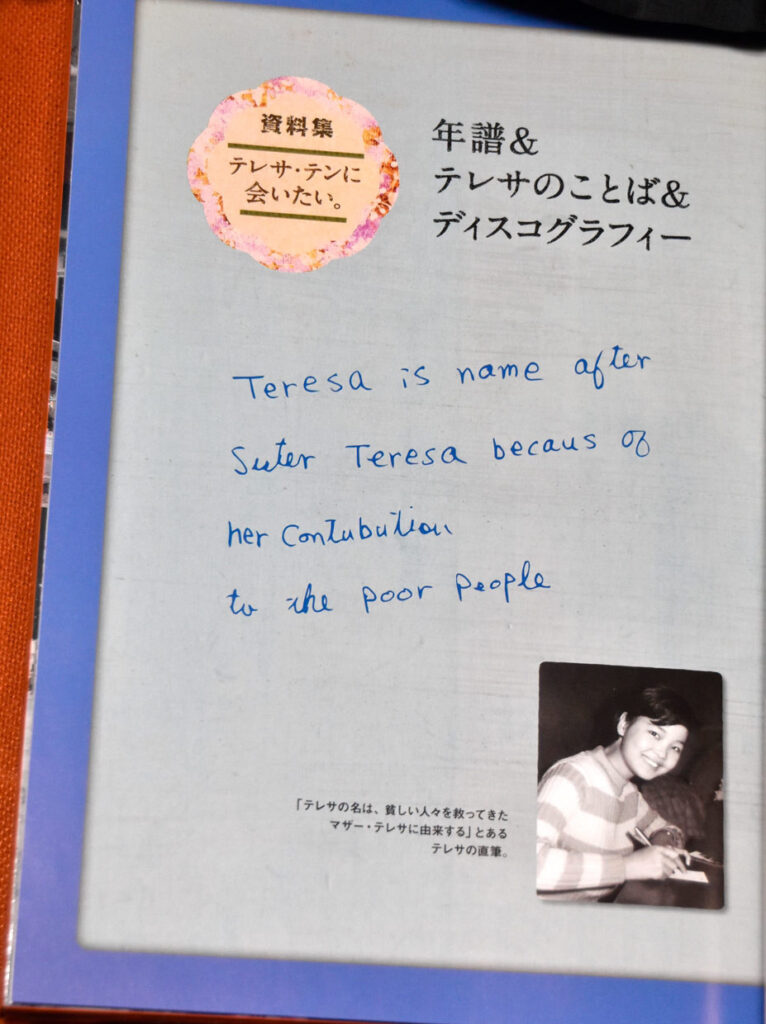 資料集
テレサ・テンに
会いたい。
年譜&
テレサのことば&
ディスコグラフィー
Teresa is name after
Suter Teresa becaus of
her Contubution
to the poor people
「テレサの名は、貧しい人々を救ってきた
マザー・テレサに由来する」とある
テレサの直筆。